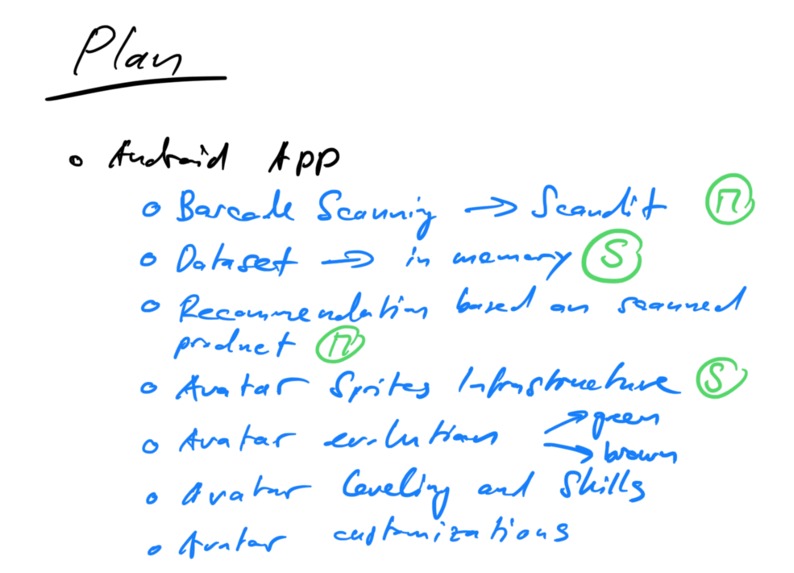 Plan
Android App
Barcode Scanning → Scandit M
Dataset → in memory S
Recommendation based on scanned
product M
Avatar Sprites Infrastructure S
Avatar evolution → green
→ brown
Avatar leveling and skills
Avatar customizations